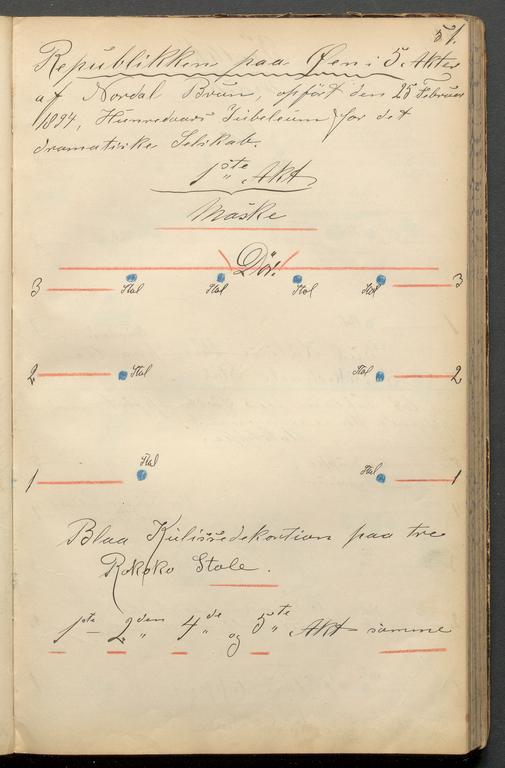 51.
Republikken paa Øen i 5 Akter
af Nordal Brun, opført den 25 Februar
1894, Hunredaars Jubeleum for det
dramatiske Selskab.
1ste Akt
Maske
Dør.
3 Stol Stol Stol Stol 3
2 Stol Stol 2
1 Stol Stol 1
Blaa Kulissedekortion paa tre
Rokoko Stole.
1ste – 2den 4de og 5te Akt samme